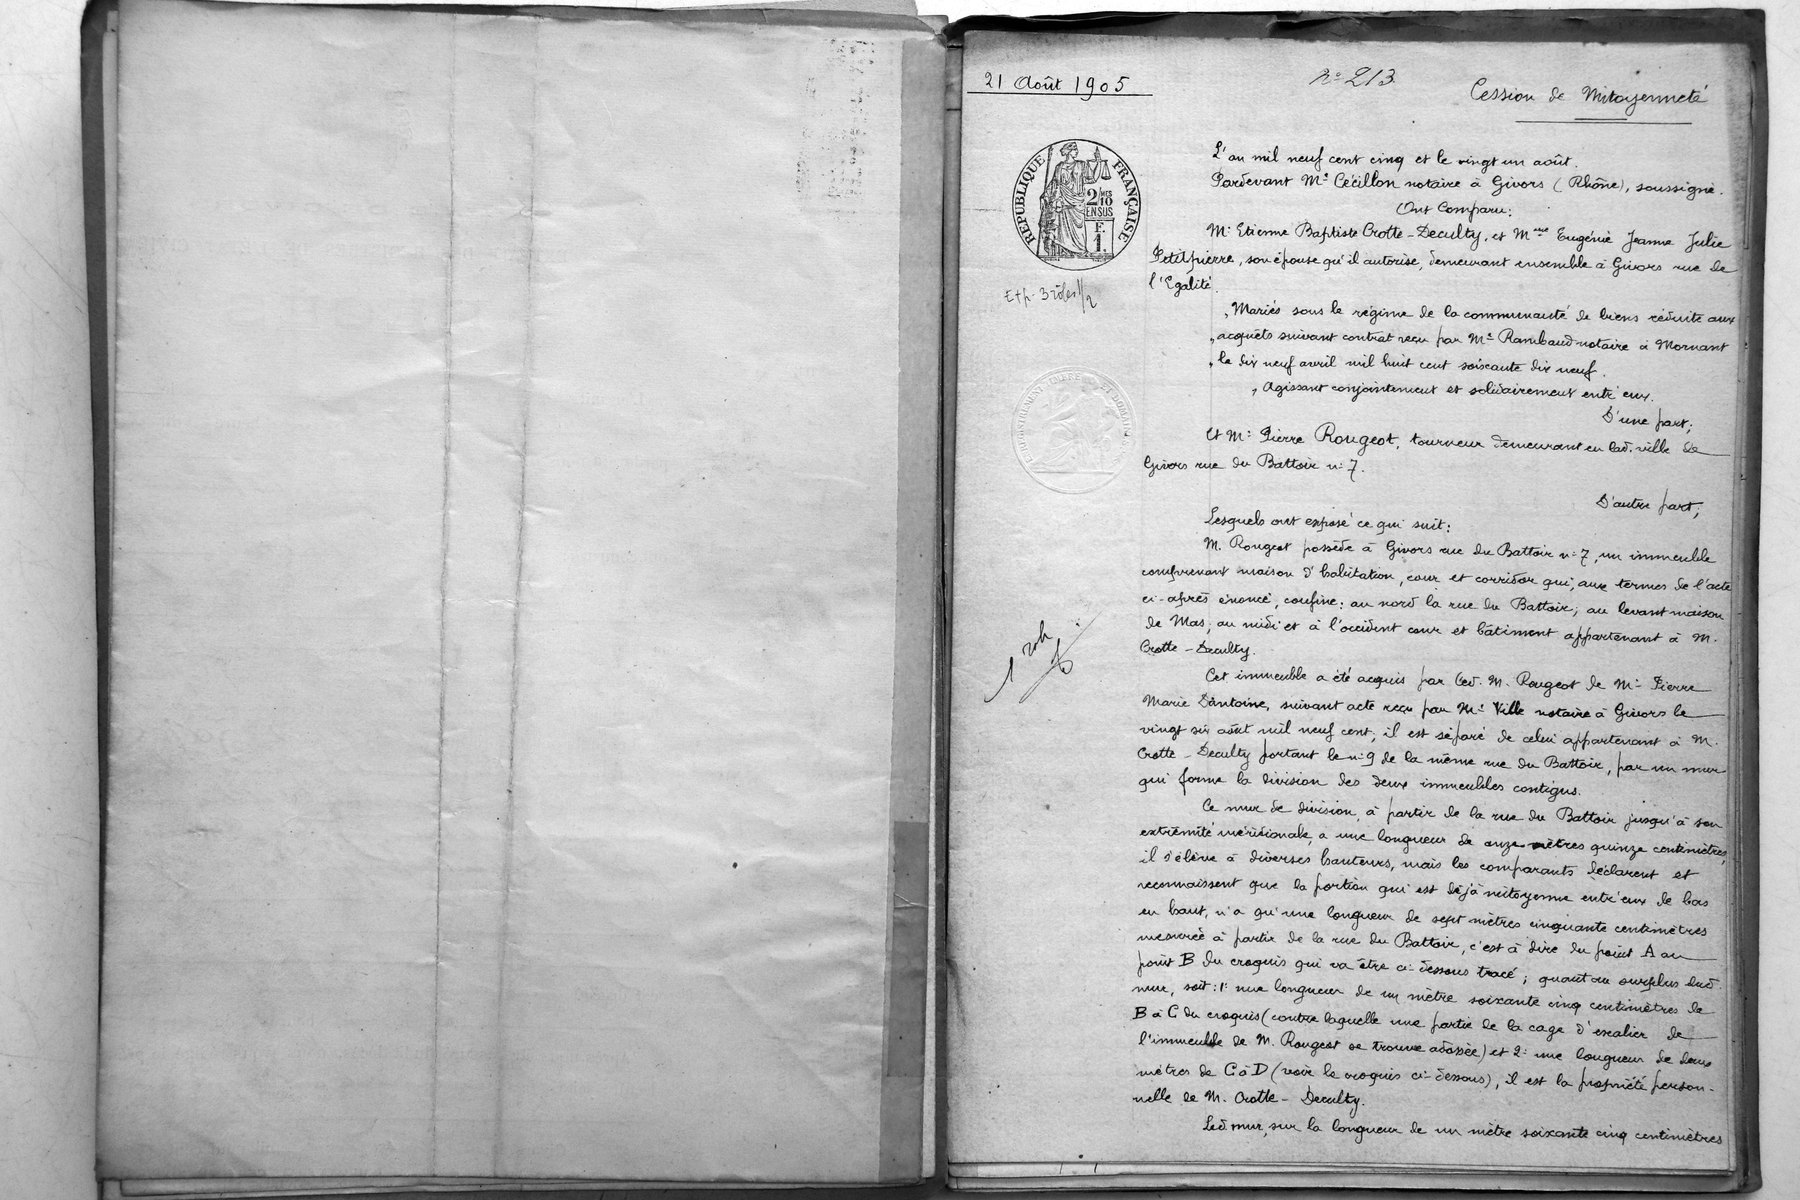 21 Août 1905
n° 213
Cession de Mitoyenneté
RÉPUBLIQUE FRANÇAISE
2/10 MES
EN SUS
F.
1.
L'an mil neuf cent cinq et le vingt un août.
Pardevant Me Cécillon notaire à Givors (Rhône), soussigné.
Ont Comparu:
Mr Etienne Baptiste Crotte-Deculty, et Mme Eugénie Jeanne Julie
Petitpierre, son épouse qu'il autorise, demeurant ensemble à Givors rue de
l'Egalité.
Etp. 3 rôles 1/2
„ Mariés sous le régime de la communauté de biens réduite aux
„ acquêts suivant contrat reçu par Me Rambaud notaire à Mornant
„ le dix neuf avril mil huit cent soixante dix neuf.
„ Agissant conjointement et solidairement entr'eux.
D'une part;
ENREGISTREMENT TIMBRE ET DOMAINES
Et Mr Pierre Rougeot, tourneur demeurant en lad. ville de
Givors rue du Battoir n: 7.
D'autre part;
Lesquels ont exposé ce qui suit:
M. Rougeot possède à Givors rue du Battoir n: 7, un immeuble
comprenant maison d'habitation, cour et corridor qui, aux termes de l'acte
ci-après énoncé, confine: au nord la rue du Battoir; au levant maison
de Mas; au midi et à l'occident cour et bâtiment appartenant à M.
Crotte-Deculty.
1 rôle
Cet immeuble a été acquis par led. M. Rougeot de Mr Pierre
Marie Dantoine, suivant acte reçu par Me Ville notaire à Givors le
vingt six août mil neuf cent; il est séparé de celui appartenant à M.
Crotte-Deculty portant le n: 9 de la même rue du Battoir, par un mur
qui forme la division des deux immeubles contigus.
Ce mur de division, à partir de la rue du Battoir jusqu'à son
extrêmité méridionale, a une longueur de onze mètres quinze centimètres,
il s'élève à diverses hauteurs, mais les comparants déclarent et
reconnaissent que la portion qui est déjà mitoyenne entr'eux de bas
en haut, n'a qu'une longueur de sept mètres cinquante centimètres
mesurée à partir de la rue du Battoir, c'est à dire du point A au
point B du croquis qui va être ci-dessous tracé; quant au surplus dud.
mur, soit: 1: une longueur de un mètre soixante cinq centimètres de
B à C du croquis (contre laquelle une partie de la cage d'escalier de
l'immeuble de M. Rougeot se trouve adossée) et 2: une longueur de deux
mètres de C à D (voir le croquis ci-dessous), il est la propriété person-
nelle de M. Crotte-Deculty.
Led. mur, sur la longueur de un mètre soixante cinq centimètres